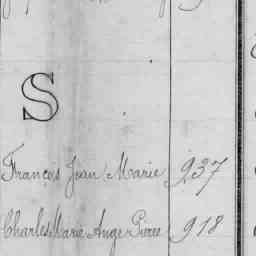 S
François Jean Marie 237
Charles Marie Ange Pierre 918